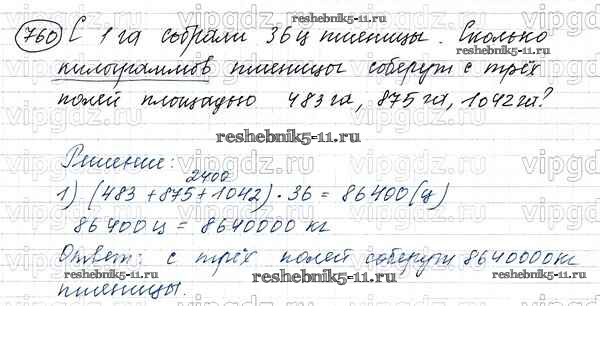 760 С 1 га собрали 36 ц пшеницы. Сколько
килограммов пшеницы соберут с трёх
полей площадью 483 га, 875 га, 1042 га?
reshebnik5-11.ru
reshebnik5-11.ru
reshebnik5-11.ru
Решение:
2400
1) (483 + 875 + 1042) · 36 = 86400 (ц)
86400 ц = 8640000 кг
Ответ: с трёх полей соберут 8640000 кг
пшеницы.
reshebnik5-11.ru
reshebnik5-11.ru
reshebnik5-11.ru
vipgdz.ru